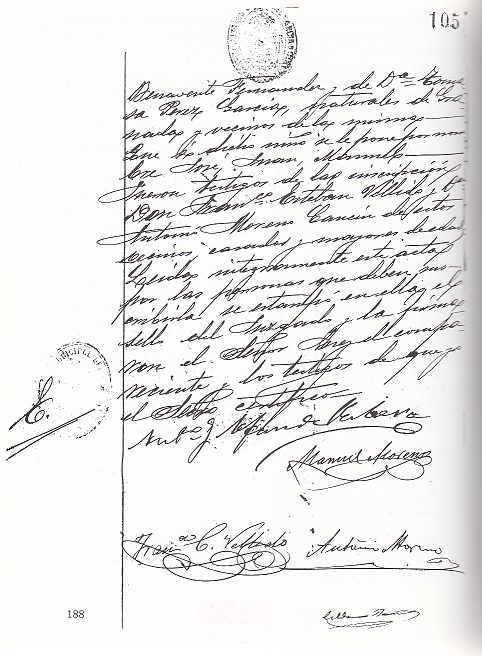 105
Benavente Fernandez y de Dª Toma
sa Perez Garcia, naturales de Gra
nada y vecinos de la misma
Que á dicho niño se le pone por nom
bre José, Juan, Manuel
Fueron testigos de la inscripción
Don Franco Esteban Vellido y Dn
Antonio Moreno Cancin de estos
vecinos, casados y mayores de edad
Leida integramente esta acta
por las personas que deben sus
cribirla se estampó en ella el
sello del Juzgado y la firma
ron el Señor Juez el compa
reciente y los testigos de que yo
el Srio certifico
Manuel Moreno
Franco E. Vellido
Antonio Moreno
188